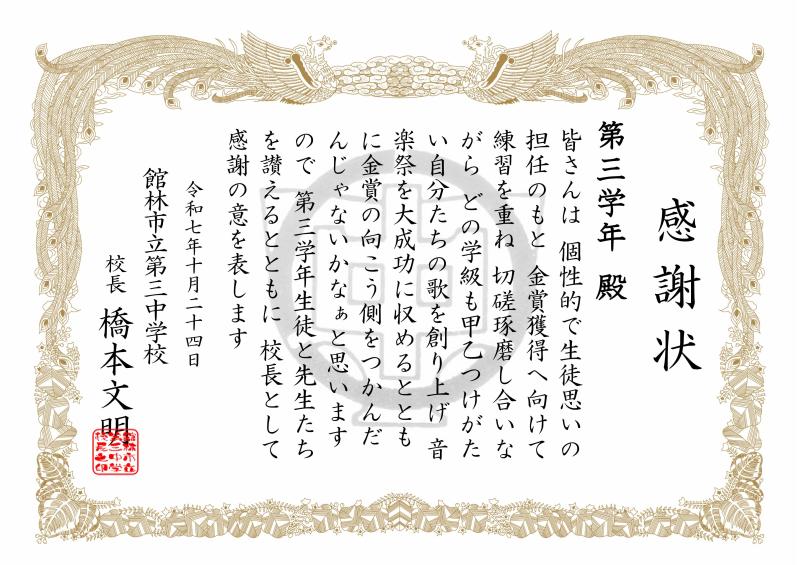 感謝状
第三学年 殿
皆さんは 個性的で生徒思いの
担任のもと 金賞獲得へ向けて
練習を重ね 切磋琢磨し合いな
がら どの学級も甲乙つけがた
い自分たちの歌を創り上げ 音
楽祭を大成功に収めるととも
に金賞の向こう側をつかんだ
んじゃないかなぁと思います
ので 第三学年生徒と先生たち
を讃えるとともに 校長として
感謝の意を表します
令和七年十月二十四日
館林市立第三中学校
校長 橋本文明